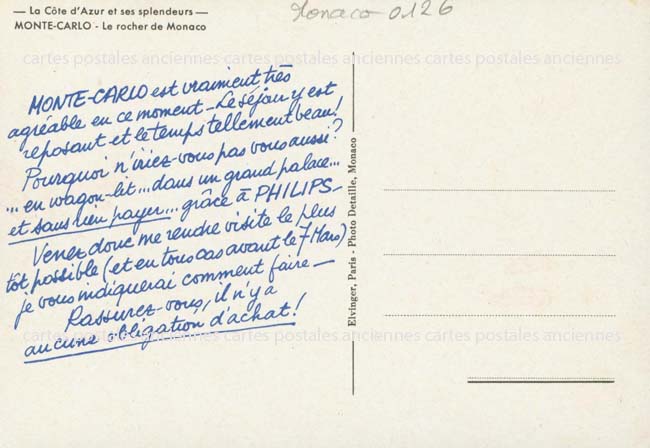 — La Côte d'Azur et ses splendeurs —
MONTE-CARLO - Le rocher de Monaco
Monaco 0126
MONTE-CARLO est vraiment très
agréable en ce moment - Le séjour y est
reposant et le temps tellement beau!
Pourquoi n'iriez-vous pas vous aussi?
... en wagon-lit... dans un grand palace...
et sans rien payer... grâce à PHILIPS -
Venez donc me rendre visite le plus
tôt possible (et en tous cas avant le 7 Mars)
je vous indiquerai comment faire -
Rassurez-vous, il n'y a
aucune obligation d'achat!
Elvinger, Paris - Photo Detaille, Monaco
cartes postales anciennes cartes postales anciennes cartes postales anciennes
cartes postales anciennes cartes postales anciennes cartes postales anciennes